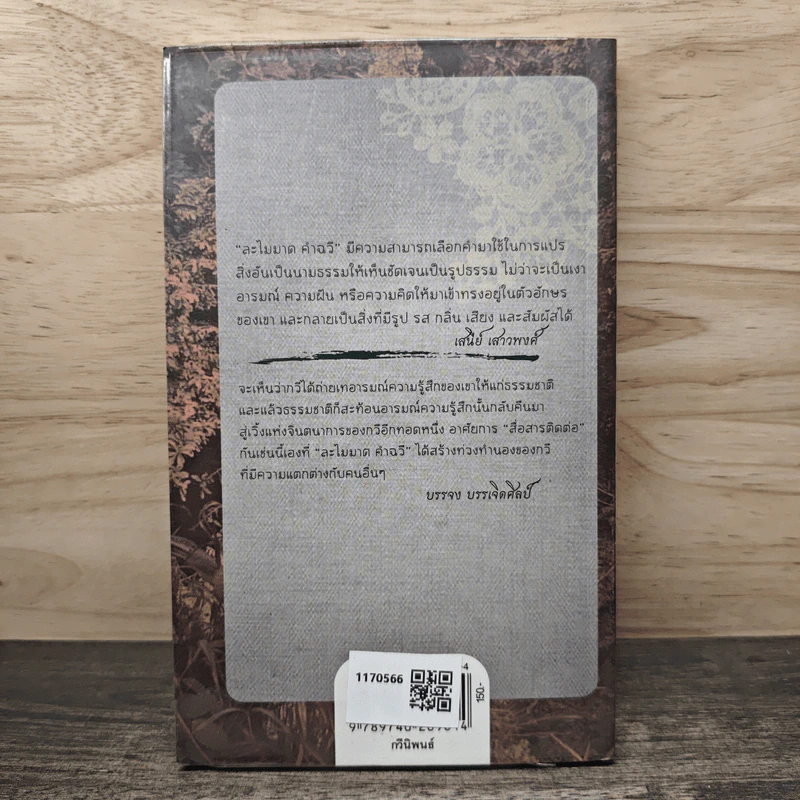 “ละไมมาด คำฉวี” มีความสามารถเลือกคำมาใช้ในการแปร
สิ่งอันเป็นนามธรรมให้เห็นชัดเจนเป็นรูปธรรม ไม่ว่าจะเป็นเงา
อารมณ์ ความฝัน หรือความคิดให้มาเข้าทรงอยู่ในตัวอักษร
ของเขา และกลายเป็นสิ่งที่มีรูป รส กลิ่น เสียง และสัมผัสได้
เสนีย์ เสาวพงศ์
จะเห็นว่ากวีได้ถ่ายเทอารมณ์ความรู้สึกของเขาให้แก่ธรรมชาติ
และแล้วธรรมชาติก็สะท้อนอารมณ์ความรู้สึกนั้นกลับคืนมา
สู่เวิ้งแห่งจินตนาการของกวีอีกทอดหนึ่ง อาศัยการ “สื่อสารติดต่อ”
กันเช่นนี้เองที่ “ละไมมาด คำฉวี” ได้สร้างท่วงทำนองของกวี
ที่มีความแตกต่างกับคนอื่นๆ
บรรจง บรรเจิดศิลป์
1170566
150.-
กวีนิพนธ์